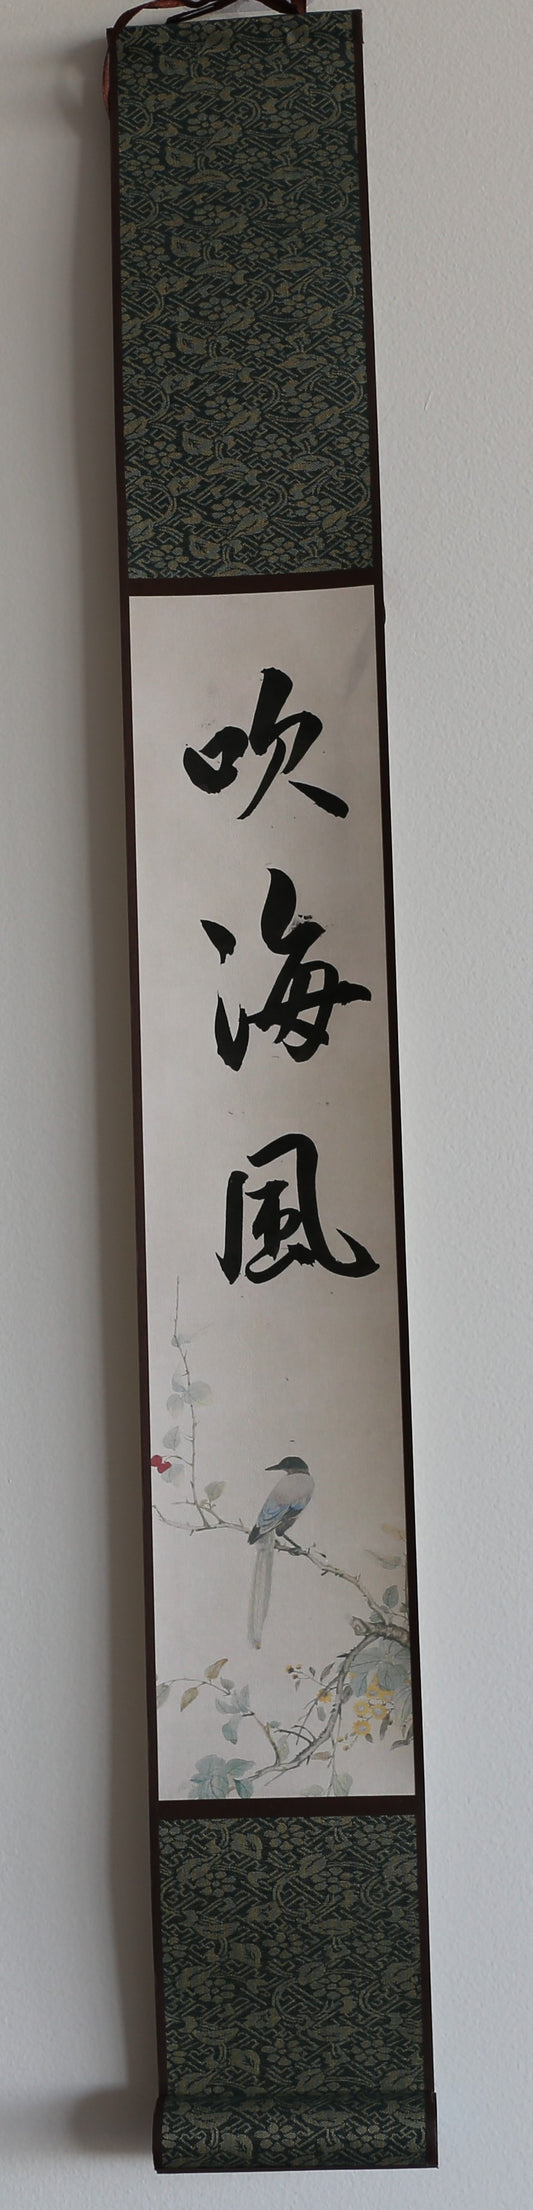 吹海風